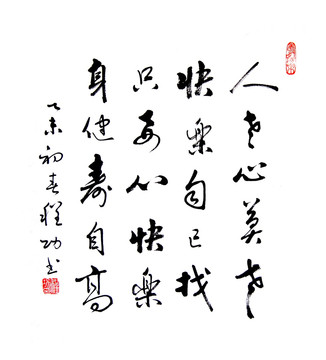 人老心莫老
快樂自己找
只要心快樂
身健壽自高
乙未初春程功书